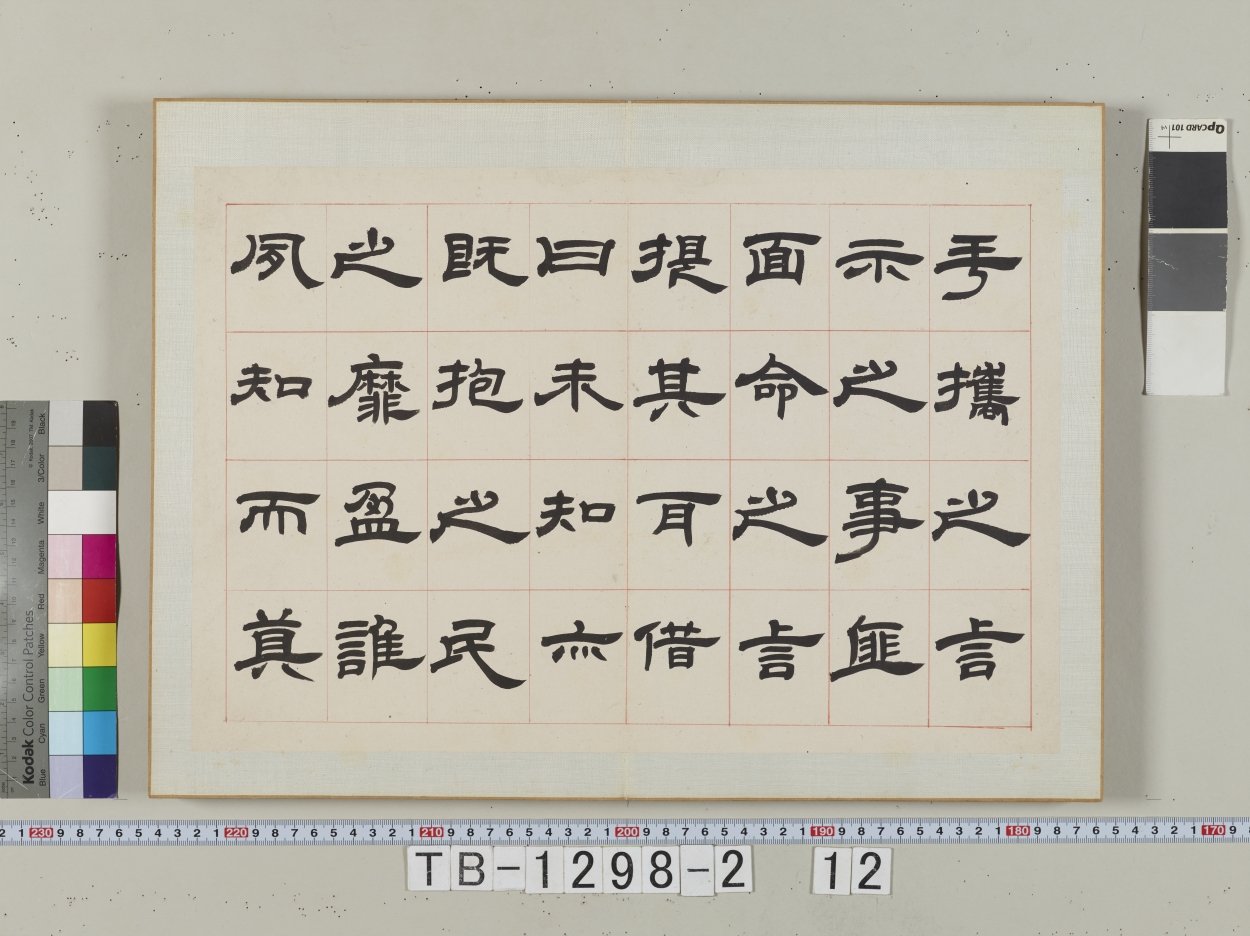 手攜之言
示之事匪
面命之言
提其耳借
曰未知亦
既抱之民
之靡盈誰
夙知而莫
QpCARD 101
Kodak Color Control Patches
Blue Cyan Green Yellow Red Magenta White 3/Color Black
2 1 230 9 8 7 6 5 4 3 2 1 220 9 8 7 6 5 4 3 2 1 210 9 8 7 6 5 4 3 2 1 200 9 8 7 6 5 4 3 2 1 190 9 8 7 6 5 4 3 2 1 180 9 8 7 6 5 4 3 2 1 170 9
TB-1298-2 12